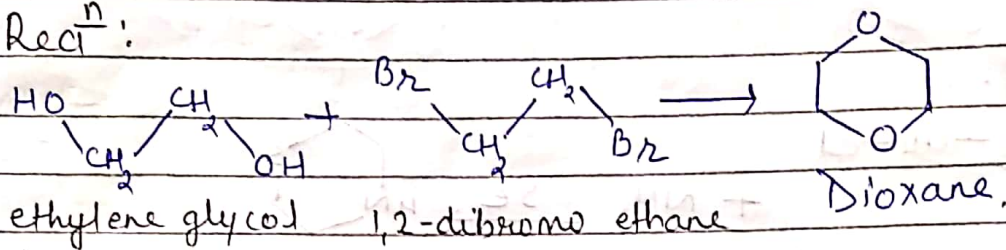 Reacⁿ:
HO CH₂ + Br CH₂ ⟶ O
CH₂ OH CH₂ Br O
ethylene glycol 1,2-dibromo ethane Dioxane.